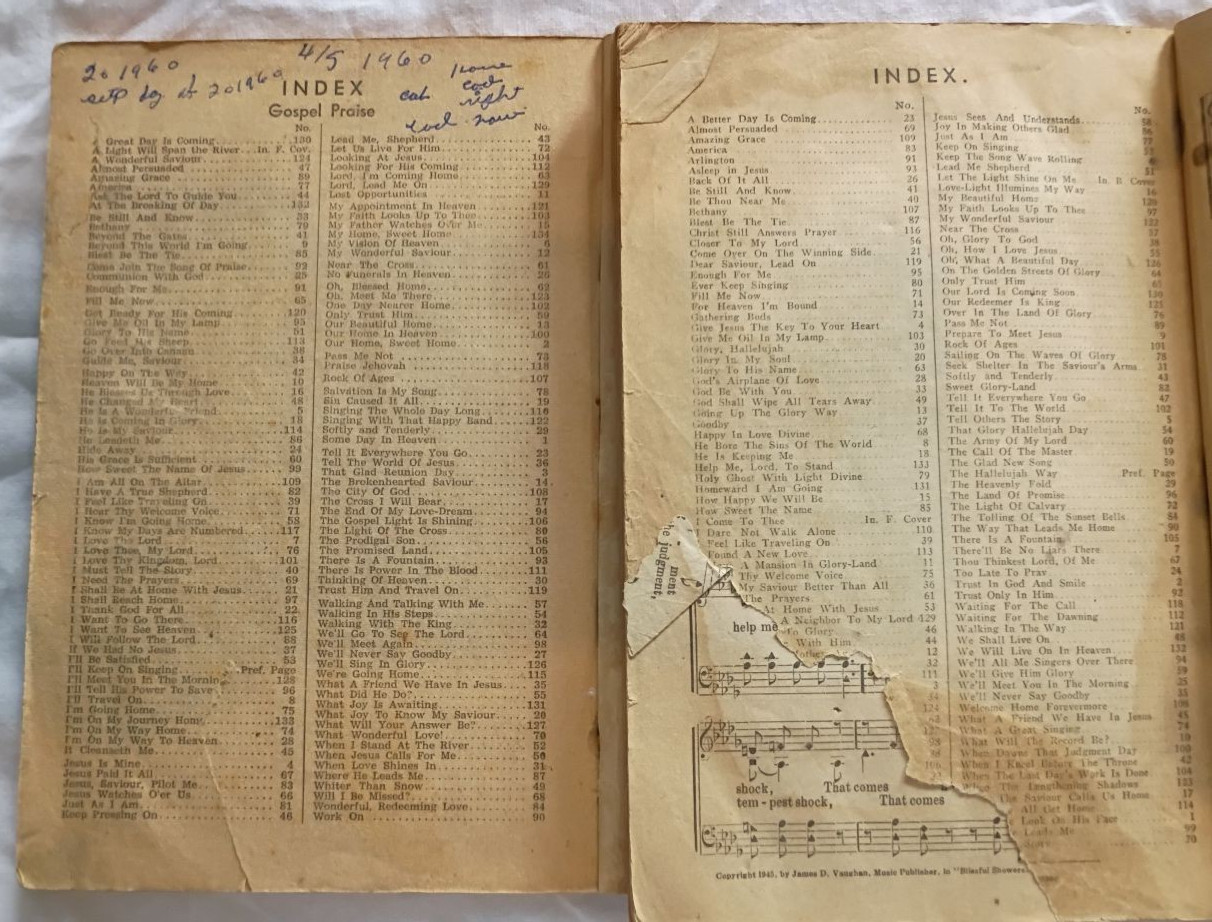 20 1960
4/5 1960
INDEX
Gospel Praise
No.
Great Day Is Coming 130
A Light Will Span the River In. F. Cov.
A Wonderful Saviour 124
Almost Persuaded 47
Amazing Grace 89
America 77
Ask The Lord To Guide You 44
At The Breaking Of Day 132
Be Still And Know 33
Bethany 79
Beyond The Gates 41
Beyond This World I'm Going 9
Blest Be The Tie 85
Come Join The Song Of Praise 92
Communion With God 25
Enough For Me 91
Fill Me Now 65
Get Ready For His Coming 120
Give Me Oil In My Lamp 95
Glory To His Name 51
Go Feed His Sheep 113
Go Over Into Canaan 38
Guide Me, Saviour 34
Happy On The Way 42
Heaven Will Be My Home 10
He Blesses Us Through Love 16
He Changed My Heart 48
He Is A Wonderful Friend 5
He Is Coming In Glory 18
He Is My Saviour 114
He Leadeth Me 86
Hide Away 24
His Grace Is Sufficient 60
How Sweet The Name Of Jesus 99
I Am All On The Altar 109
I Have A True Shepherd 82
I Feel Like Traveling On 39
I Hear Thy Welcome Voice 71
I Know I'm Going Home 58
I Know My Days Are Numbered 117
I Love The Lord 7
I Love Thee, My Lord 76
I Love Thy Kingdom, Lord 101
I Must Tell The Story 40
I Need The Prayers 69
I Shall Be At Home With Jesus 21
I Shall Reach Home 97
I Thank God For All 22
I Want To Go There 116
I Want To See Heaven 125
I Will Follow The Lord 88
If We Had No Jesus 37
I'll Be Satisfied 53
I'll Keep On Singing Pref. Page
I'll Meet You In The Morning 128
I'll Tell His Power To Save 96
I'll Travel On 8
I'm Going Home 75
I'm On My Journey Home 133
I'm On My Way Home 74
I'm On My Way To Heaven 28
It Cleanseth Me 45
Jesus Is Mine 4
Jesus Paid It All 67
Jesus, Saviour, Pilot Me 83
Jesus Watches O'er Us 66
Just As I Am 81
Keep Pressing On 46
No.
Lead Me, Shepherd 43
Let Us Live For Him 72
Looking At Jesus 104
Looking For His Coming 112
Lord, I'm Coming Home 63
Lord, Lead Me On 129
Lost Opportunities 11
My Appointment In Heaven 121
My Faith Looks Up To Thee 103
My Father Watches Over Me 15
My Home, Sweet Home 134
My Vision Of Heaven 6
My Wonderful Saviour 12
Near The Cross 61
No Funerals In Heaven 26
Oh, Blessed Home 62
Oh, Meet Me There 123
One Day Nearer Home 102
Only Trust Him 59
Our Beautiful Home 13
Our Home In Heaven 100
Our Home, Sweet Home 2
Pass Me Not 73
Praise Jehovah 118
Rock Of Ages 107
Salvation Is My Song 78
Sin Caused It All 19
Singing The Whole Day Long 116
Singing With That Happy Band 122
Softly and Tenderly 29
Some Day In Heaven 1
Tell It Everywhere You Go 23
Tell The World Of Jesus 36
That Glad Reunion Day 3
The Brokenhearted Saviour 14
The City Of God 108
The Cross I Will Bear 17
The End Of My Love-Dream 94
The Gospel Light Is Shining 106
The Light Of The Cross 80
The Prodigal Son 56
The Promised Land 105
There Is A Fountain 93
There Is Power In The Blood 111
Thinking Of Heaven 30
Trust Him And Travel On 119
Walking And Talking With Me 57
Walking In His Steps 54
Walking With The King 32
We'll Go To See The Lord 64
We'll Meet Again 98
We'll Never Say Goodby 27
We'll Sing In Glory 126
We're Going Home 115
What A Friend We Have In Jesus 35
What Did He Do? 55
What Joy Is Awaiting 131
What Joy To Know My Saviour 20
What Will Your Answer Be? 127
What Wonderful Love! 70
When I Stand At The River 52
When Jesus Calls For Me 50
When Love Shines In 31
Where He Leads Me 87
Whiter Than Snow 49
Will I Be Missed? 68
Wonderful, Redeeming Love 84
Work On 90
INDEX.
No.
A Better Day Is Coming 23
Almost Persuaded 69
Amazing Grace 109
America 83
Arlington 91
Asleep in Jesus 93
Back Of It All 26
Be Still And Know 41
Be Thou Near Me 40
Bethany 107
Blest Be The Tie 87
Christ Still Answers Prayer 116
Closer To My Lord 56
Come Over On The Winning Side 21
Dear Saviour, Lead On 119
Enough For Me 95
Ever Keep Singing 80
Fill Me Now 71
For Heaven I'm Bound 14
Gathering Buds 73
Give Jesus The Key To Your Heart 4
Give Me Oil In My Lamp 103
Glory, Hallelujah 30
Glory In My Soul 20
Glory To His Name 63
God's Airplane Of Love 28
God Be With You 33
God Shall Wipe All Tears Away 49
Going Up The Glory Way 13
Goodby 37
Happy In Love Divine 68
He Bore The Sins Of The World 8
He Is Keeping Me 18
Help Me, Lord, To Stand 133
Holy Ghost With Light Divine 79
Homeward I Am Going 131
How Happy We Will Be 15
How Sweet The Name 85
I Come To Thee In. F. Cover
I Dare Not Walk Alone 110
Feel Like Traveling On 39
Found A New Love 113
A Mansion In Glory-Land 11
Thy Welcome Voice 75
My Saviour Better Than All 36
The Prayers 61
At Home With Jesus 53
A Neighbor To My Lord 129
To Glory 46
With Him 44
12
32
111
3
the judgment,
ment
help me
shock, That comes
tem - pest shock, That comes
Copyright 1945, by James D. Vaughan, Music Publisher, in "Blissful Showers
No.
Jesus Sees And Understands
Joy In Making Others Glad
Just As I Am
Keep On Singing
Keep The Song Wave Rolling
Lead Me Shepherd
Let The Light Shine On Me In. B Cover
Love-Light Illumines My Way
My Beautiful Home
My Faith Looks Up To Thee 97
My Wonderful Saviour
Near The Cross 57
Oh, Glory To God
Oh, How I Love Jesus
Oh, What A Beautiful Day
On The Golden Streets Of Glory
Only Trust Him 65
Our Lord Is Coming Soon
Our Redeemer Is King
Over In The Land Of Glory
Pass Me Not 89
Prepare To Meet Jesus 9
Rock Of Ages 101
Sailing On The Waves Of Glory 78
Seek Shelter In The Saviour's Arms 31
Softly and Tenderly 43
Sweet Glory-Land 82
Tell It Everywhere You Go 47
Tell It To The World 102
Tell Others The Story 5
That Glory Hallelujah Day 54
The Army Of My Lord 60
The Call Of The Master 19
The Glad New Song 50
The Hallelujah Way Pref. Page
The Heavenly Fold 29
The Land Of Promise 96
The Light Of Calvary 72
The Tolling Of The Sunset Bells 84
The Way That Leads Me Home 90
There Is A Fountain 105
There'll Be No Liars There 7
Thou Thinkest Lord, Of Me 67
Too Late To Pray 24
Trust In God And Smile 2
Trust Only In Him 92
Waiting For The Call 118
Waiting For The Dawning 112
Walking In The Way 121
We Shall Live On 48
We Will Live On In Heaven 132
We'll All Me Singers Over There 94
We'll Give Him Glory 59
We'll Meet You In The Morning 25
We'll Never Say Goodby 35
Welcome Home Forevermore
What A Friend We Have In Jesus 45
What A Great Singing 74
What Will The Record Be? 10
When Dawns That Judgment Day 100
When I Kneel Before The Throne 42
When The Last Day's Work Is Done 104
The Lengthening Shadows 123
The Saviour Calls Us Home 17
All Get Home 114
Look On His Face 1
Leads Me 99
70